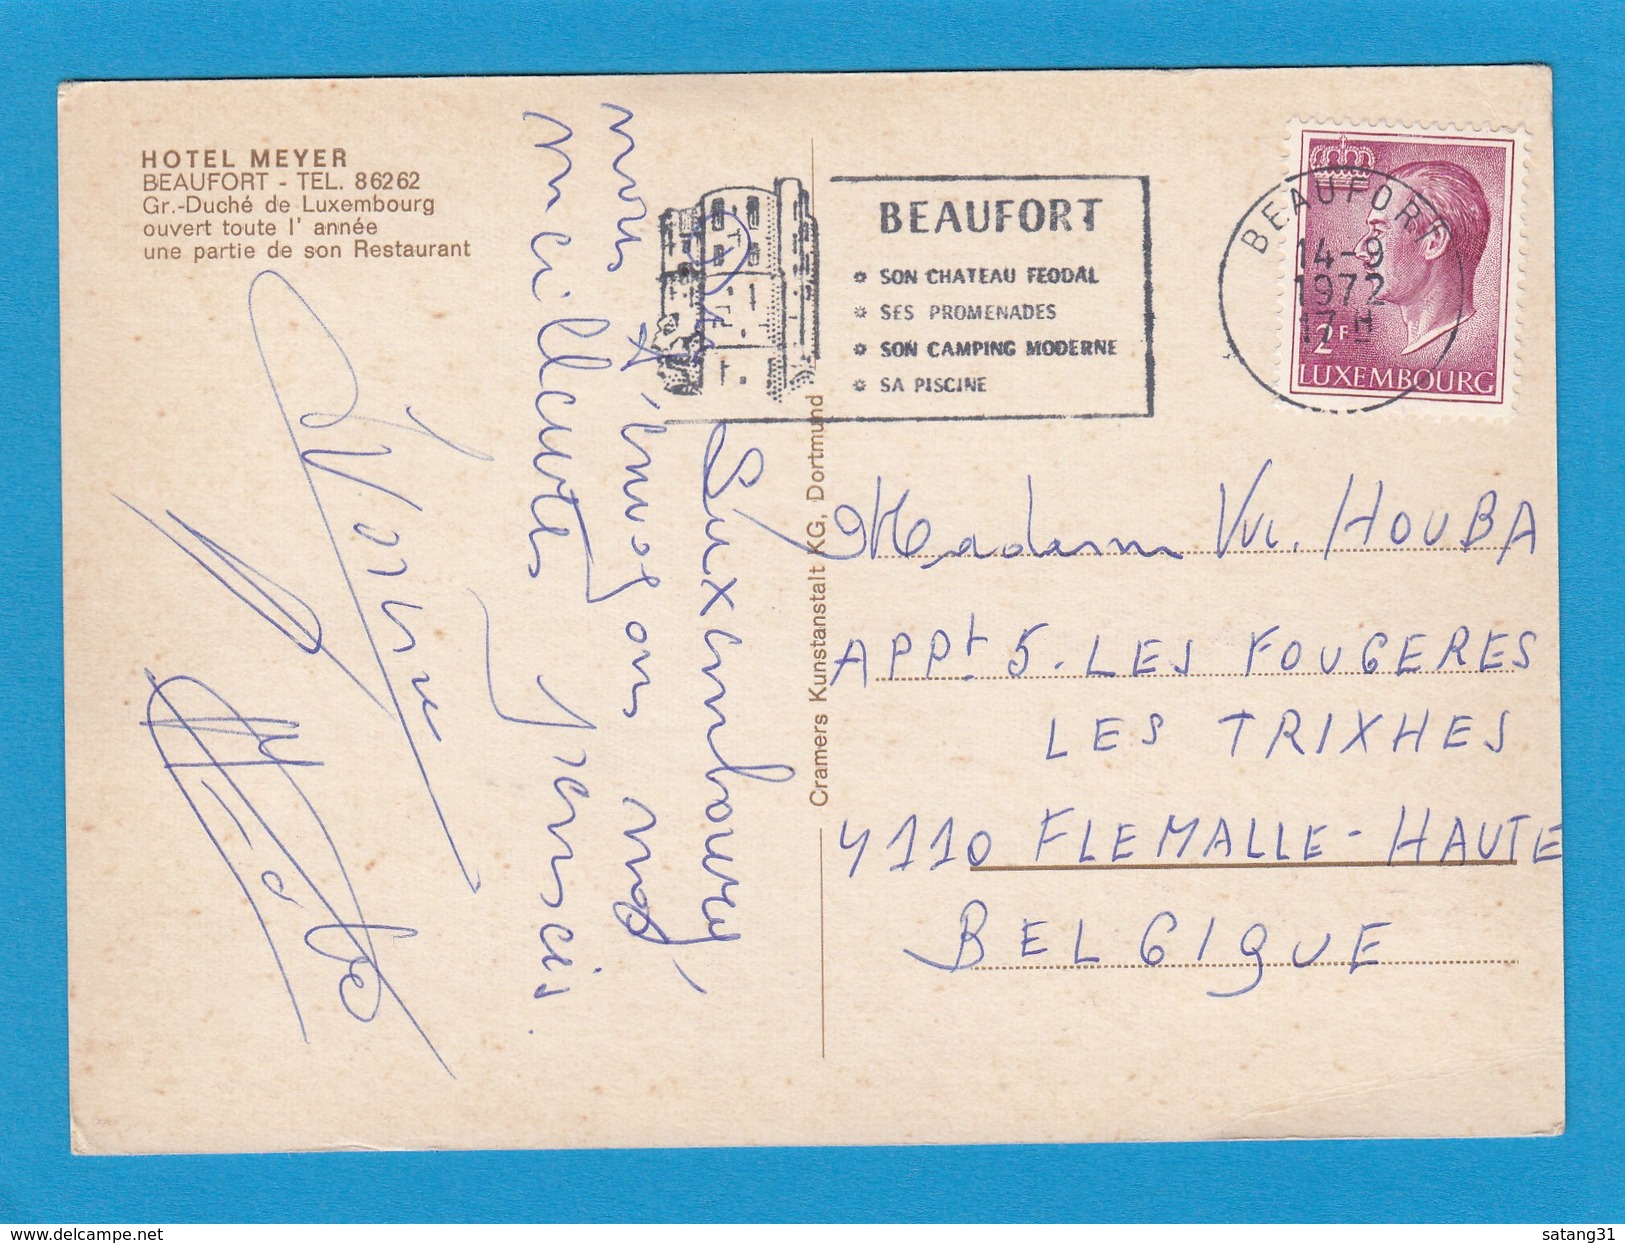 HOTEL MEYER
BEAUFORT - TEL. 86262
Gr.-Duché de Luxembourg
ouvert toute l' année
une partie de son Restaurant
Du
Luxembourg,
nous t'envoyons nos
meilleures pensées.
Cramers Kunstanstalt KG, Dortmund
BEAUFORT
SON CHATEAU FEODAL
SES PROMENADES
SON CAMPING MODERNE
SA PISCINE
BEAUFORT
14-9
1972
17 H
2F
LUXEMBOURG
Madame Vve. HOUBA
APPt 5. LES FOUGERES
LES TRIXHES
4110 FLEMALLE-HAUTE
BELGIQUE
satang31